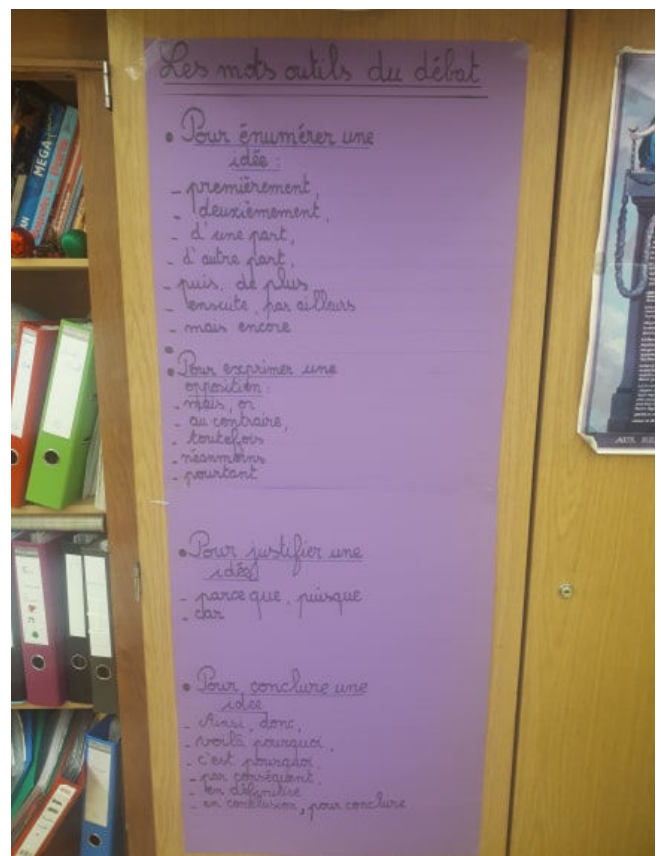 Les mots outils du débat
• Pour énumérer une
idée :
- premièrement,
- deuxièmement,
- d'une part,
- d'autre part,
- puis, de plus
- ensuite, par ailleurs
- mais encore
• Pour exprimer une
opposition :
- mais, or
- au contraire,
- toutefois
- néanmoins
- pourtant
• Pour justifier une
idée
- parce que, puisque
- car
• Pour conclure une
idée
- Ainsi, donc,
- voilà pourquoi,
- c'est pourquoi,
- par conséquent,
- en définitive
- en conclusion, pour conclure
MEGA